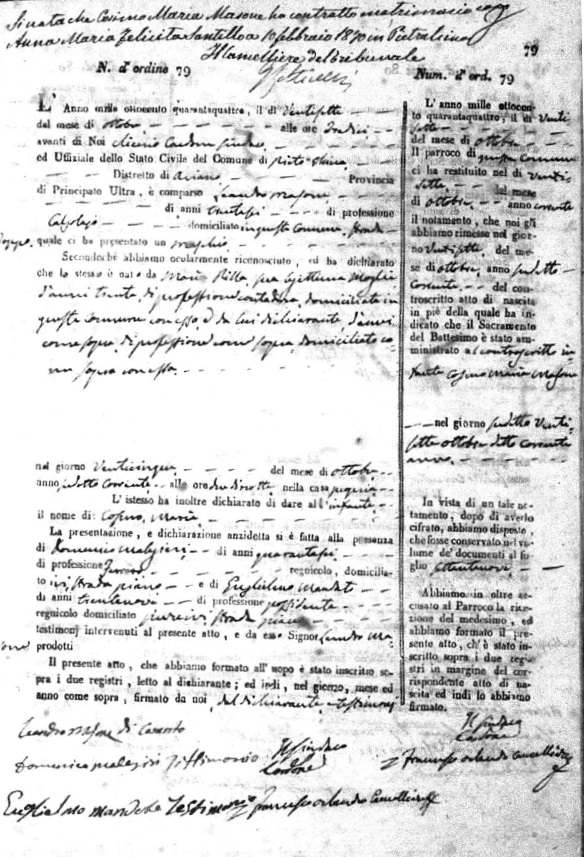 Si nota che Cosimo Maria Masone ha contratto matrimonio con
Anna Maria Felicita Santillo a 10 febbraio 1870 in Pietralcina
Il Cancelliere del Tribunale
79
N. d'ordine 79
L'Anno mille ottocento quarantaquattro, il dì ventisette
del mese di ottobre alle ore
avanti di Noi Cardone Sindaco
ed Uffiziale dello Stato Civile del Comune di
Distretto di Ariano Provincia
di Principato Ultra, è comparso Leandro Masone
di anni di professione
domiciliato in questo Comune, strada
quale ci ha presentato un maschio
Secondochè abbiamo ocularmente riconosciuto, ed ha dichiarato
che lo stesso è nato da Maria sua legittima Moglie
d'anni trenta, di professione contadina, domiciliata in
questo Comune con esso, e da lui dichiarante, d'anni
come sopra, di professione come sopra, domiciliato co-
me sopra con essa
nel giorno venticinque del mese di ottobre
anno sudetto corrente alle ore nella casa
L'istesso ha inoltre dichiarato di dare all'infante
il nome di Cosimo Maria
La presentazione, e dichiarazione anzidetta si è fatta alla presenza
di Domenico di anni
di professione regnicolo, domicilia-
to ivi, strada piano e di Guglielmo
di anni trentanove di professione possidente
regnicolo domiciliato pure ivi, strada piano
testimonj intervenuti al presente atto, e da esso Signor Leandro Ma-
sone prodotti
Il presente atto, che abbiamo formato all'uopo è stato inscritto so-
pra i due registri, letto al dichiarante; ed indi, nel giorno, mese ed
anno come sopra, firmato da noi, dal dichiarante e testimonj
Leandro Masone
Domenico testimonio
Il Sindaco
Cardone
testimonio Francesco Orlando Cancelliere
Num. d'ord. 79
L'anno mille ottocen-
to quarantaquattro, il dì venti
sette
del mese di ottobre
Il parroco di questo Comune
ci ha restituito nel dì venti
sette del mese
di ottobre anno corrente
il notamento, che noi gli
abbiamo rimesso nel gior-
no ventisette del me-
se di ottobre, anno sudetto
corrente del con-
troscritto atto di nascita
in piè della quale ha in-
dicato che il Sacramento
del Battesimo è stato am-
ministrato al controscritto in-
fante Cosimo Maria Masone
nel giorno sudetto venti
sette ottobre detto corrente
anno
In vista di un tale no-
tamento, dopo di averlo
cifrato, abbiamo disposto,
che fosse conservato nel vo-
lume de' documenti al fo-
glio settantanove
Abbiamo in oltre ac-
cusato al Parroco la rice-
zione del medesimo, ed
abbiamo formato il pre-
sente atto, ch'è stato in-
scritto sopra i due regi-
stri in margine del cor-
rispondente atto di na-
scita ed indi lo abbiamo
firmato.
Il Sindaco
Cardone
Francesco Orlando Cancelliere